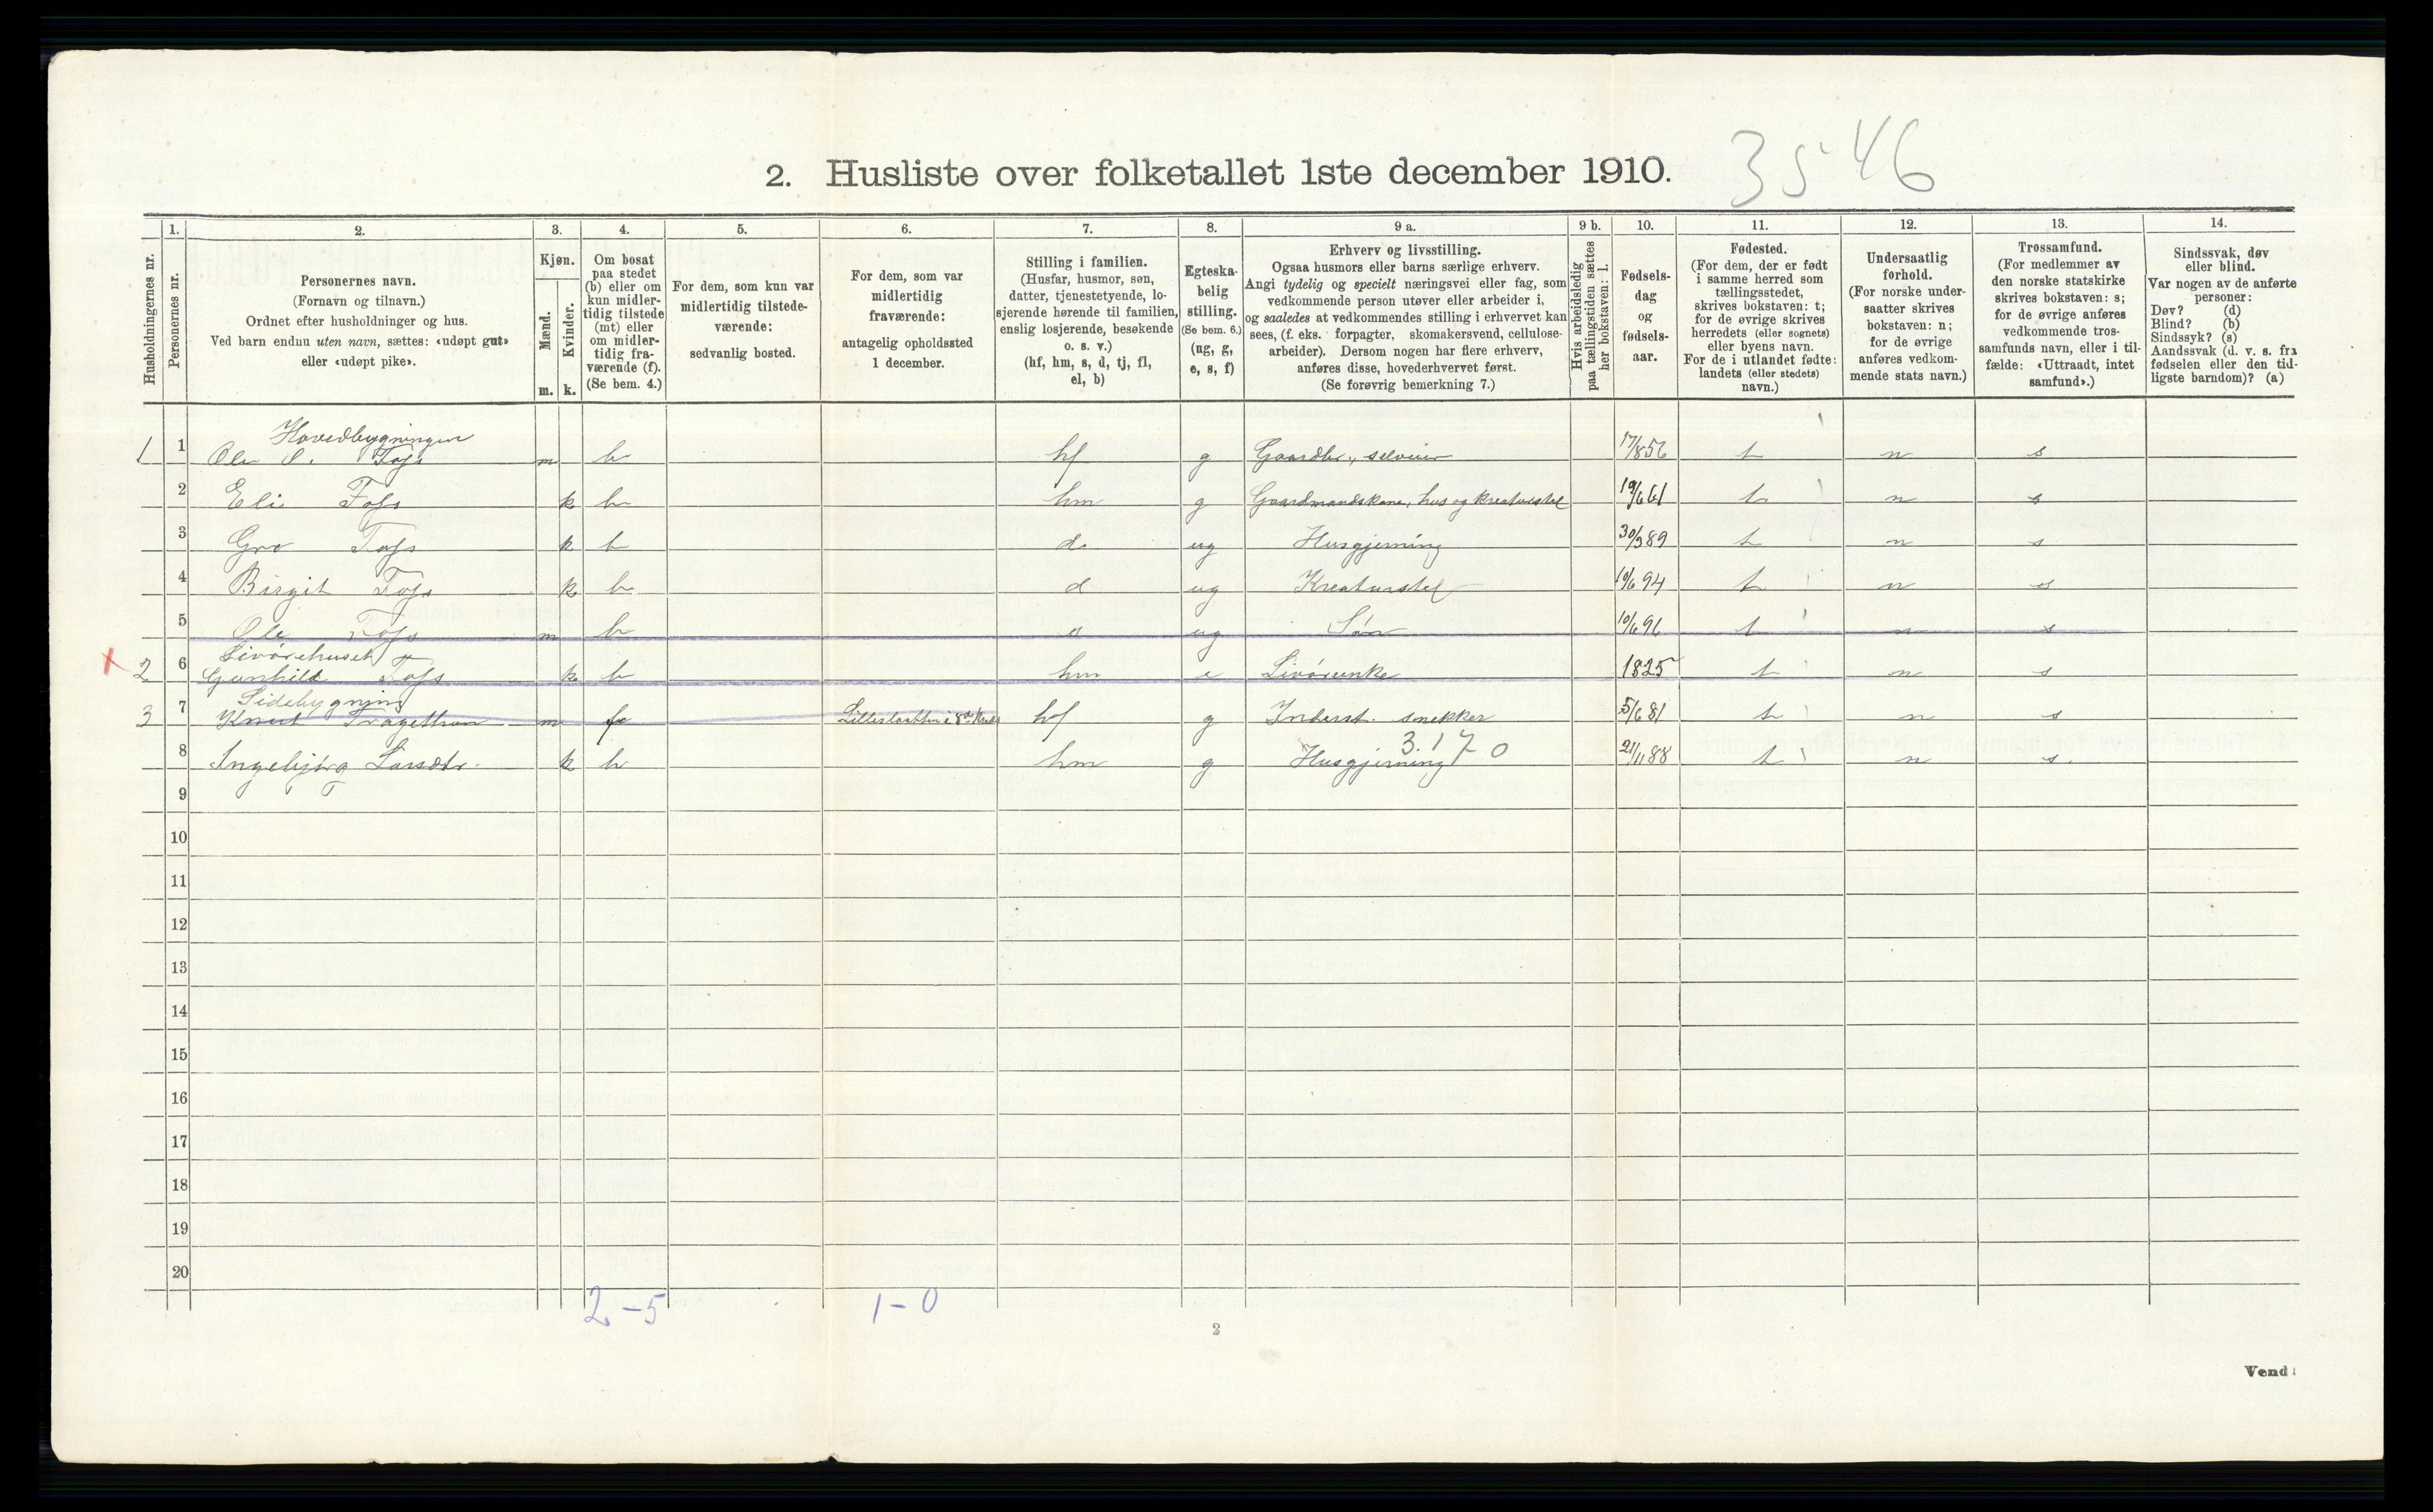 2. Husliste over folketallet 1ste december 1910.
3546
Husholdningernes nr.
1.
Personernes nr.
2.
Personernes navn.
(Fornavn og tilnavn.)
Ordnet efter husholdninger og hus.
Ved barn endnu uten navn, sættes: «udøpt gut»
eller «udøpt pike».
3.
Kjøn.
Mænd.
m.
Kvinder.
k.
4.
Om bosat
paa stedet
(b) eller om
kun midler-
tidig tilstede
(mt) eller
om midler-
tidig fra-
værende (f).
(Se bem. 4.)
5.
For dem, som kun var
midlertidig tilstede-
værende:
sedvanlig bosted.
6.
For dem, som var
midlertidig
fraværende:
antagelig opholdssted
1 december.
7.
Stilling i familien.
(Husfar, husmor, søn,
datter, tjenestetyende, lo-
sjerende hørende til familien,
enslig losjerende, besøkende
o. s. v.)
(hf, hm, s, d, tj, fl,
el, b)
8.
Egteska-
belig
stilling.
(Se bem. 6.)
(ug, g,
e, s, f)
9 a.
Erhverv og livsstilling.
Ogsaa husmors eller barns særlige erhverv.
Angi tydelig og specielt næringsvei eller fag, som
vedkommende person utøver eller arbeider i,
og saaledes at vedkommendes stilling i erhvervet kan
sees, (f. eks. forpagter, skomakersvend, cellulose-
arbeider). Dersom nogen har flere erhverv,
anføres disse, hovederhvervet først.
(Se forøvrig bemerkning 7.)
9 b.
Hvis arbeidsledig
paa tællingstiden sættes
her bokstaven: l.
10.
Fødsels-
dag
og
fødsels-
aar.
11.
Fødested.
(For dem, der er født
i samme herred som
tællingsstedet,
skrives bokstaven: t;
for de øvrige skrives
herredets (eller sognets)
eller byens navn.
For de i utlandet fødte:
landets (eller stedets)
navn.)
12.
Undersaatlig
forhold.
(For norske under-
saatter skrives
bokstaven: n;
for de øvrige
anføres vedkom-
mende stats navn.)
13.
Trossamfund.
(For medlemmer av
den norske statskirke
skrives bokstaven: s;
for de øvrige anføres
vedkommende tros-
samfunds navn, eller i til-
fælde: «Uttraadt, intet
samfund».)
14.
Sindssvak, døv
eller blind.
Var nogen av de anførte
personer:
Døv? (d)
Blind? (b)
Sindssyk? (s)
Aandssvak (d. v. s. fra
fødselen eller den tid-
ligste barndom)? (a)
Hovedbygningen
1 1 Ole O. Tofs m b hf g Gaardbr., selveier 17/8 56 t n s
2 Eli Tofs k b hm g Gaardmandskone, hus og kreaturstel 19/6 61 t n s
3 Gro Tofs k b d. ug Husgjerning 30/3 89 t n s
4 Birgit Tofs k b d ug Kreaturstel 10/6 94 t n s
5 Ole Tofs m b s ug Søn 10/6 96 t n s
Livørehuset
2 6 Gunhild Tofs k b hm e Livørenke 1825 t n s
Sidebygning
3 7 Knut Tragethon m f i 8de Kreds hf g Inderst. snekker 5/6 81 t n s
3.17 0
8 Ingebjørg Larsdtr. k b hm g Husgjerning 21/11 88 t n s.
9
10
11
12
13
14
15
16
17
18
19
20
2-5 1-0
2
Vend!